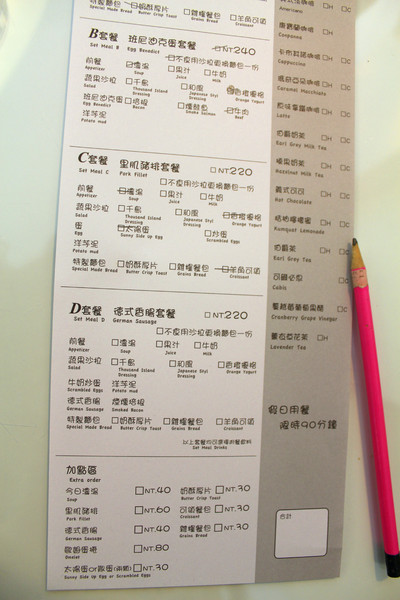 特製麵包 奶酥厚片 雜糧餐包 羊角可頌
Special Made Bread Butter Crisp Toast Grains Bread Croissant
B套餐 班尼迪克蛋套餐 NT240
Set Meal B Egg Benedict
□不食用沙拉更換麵包一份
前餐 濃湯 □果汁 □牛奶
Appetizer Soup Juice Milk
蔬果沙拉 □千島 □和風 香橙優格
Salad Thousand Island Dressing Japanese Styl Dressing Orange Yogurt
班尼迪克蛋 □培根 □燻鮭魚 牛肉
Egg Benedict Bacon Smoke Salmon Beef
洋芋泥
Potato mud
C套餐 里肌豬排套餐 □NT220
Set Meal C Pork Fillet
□不食用沙拉更換麵包一份
前餐 濃湯 □果汁 □牛奶
Appetizer Soup Juice Milk
蔬果沙拉 □千島 □和風 香橙優格
Salad Thousand Island Dressing Japanese Styl Dressing Orange Yogurt
蛋 太陽蛋 □炒蛋
Egg Sunny Side Up Egg Scrambled Eggs
洋芋泥
Potato mud
特製麵包 □奶酥厚片 □雜糧餐包 羊角可頌
Special Made Bread Butter Crisp Toast Grains Bread Croissant
D套餐 德式香腸套餐 □NT220
Set Meal D German Sausage
□不食用沙拉更換麵包一份
前餐 □濃湯 □果汁 □牛奶
Appetizer Soup Juice Milk
蔬果沙拉 □千島 □和風 □香橙優格
Salad Thousand Island Dressing Japanese Styl Dressing Orange Yogurt
牛奶炒蛋 洋芋泥
Scrambled Eggs Potato mud
德式香腸 煙燻培根
German Sausage Smoked Bacon
特製麵包 □奶酥厚片 □雜糧餐包 □羊角可頌
Special Made Bread Butter Crisp Toast Grains Bread Croissant
Set Meal Drinks
加點區
Extra order
今日濃湯 □NT.40 奶酥厚片 □NT.30
Soup Butter Crisp Toast
里肌豬排 □NT.60 可頌餐包 □NT.30
Pork Fillet Croissant
德式香腸 □NT.40 雜糧餐包 □NT.30
German Sausage Grains Bread
歐姆蛋捲 □NT.80
Omelet
太陽蛋or散蛋(兩顆) □NT.30
Sunny Side Up Egg or Scrambled Eggs
Americano
Conpanna
卡布其諾咖啡 □H □C
Cappuccino
Latte
伯爵奶茶 □H □C
Earl Grey Milk Tea
榛果奶茶 □H □C
Hazelnut Milk Tea
義式可可 □H □C
Hot Chocolate
桔柚檸檬蜜 □H □C
Kumquat Lemonade
伯爵茶 □H □C
Earl Grey Tea
可爾必思 □C
Calbis
蔓越莓葡萄果醋 □C
Cranberry Grape Vinegar
薰衣草花茶 □H
Lavender Tea
假日用餐
限時90分鐘
合計